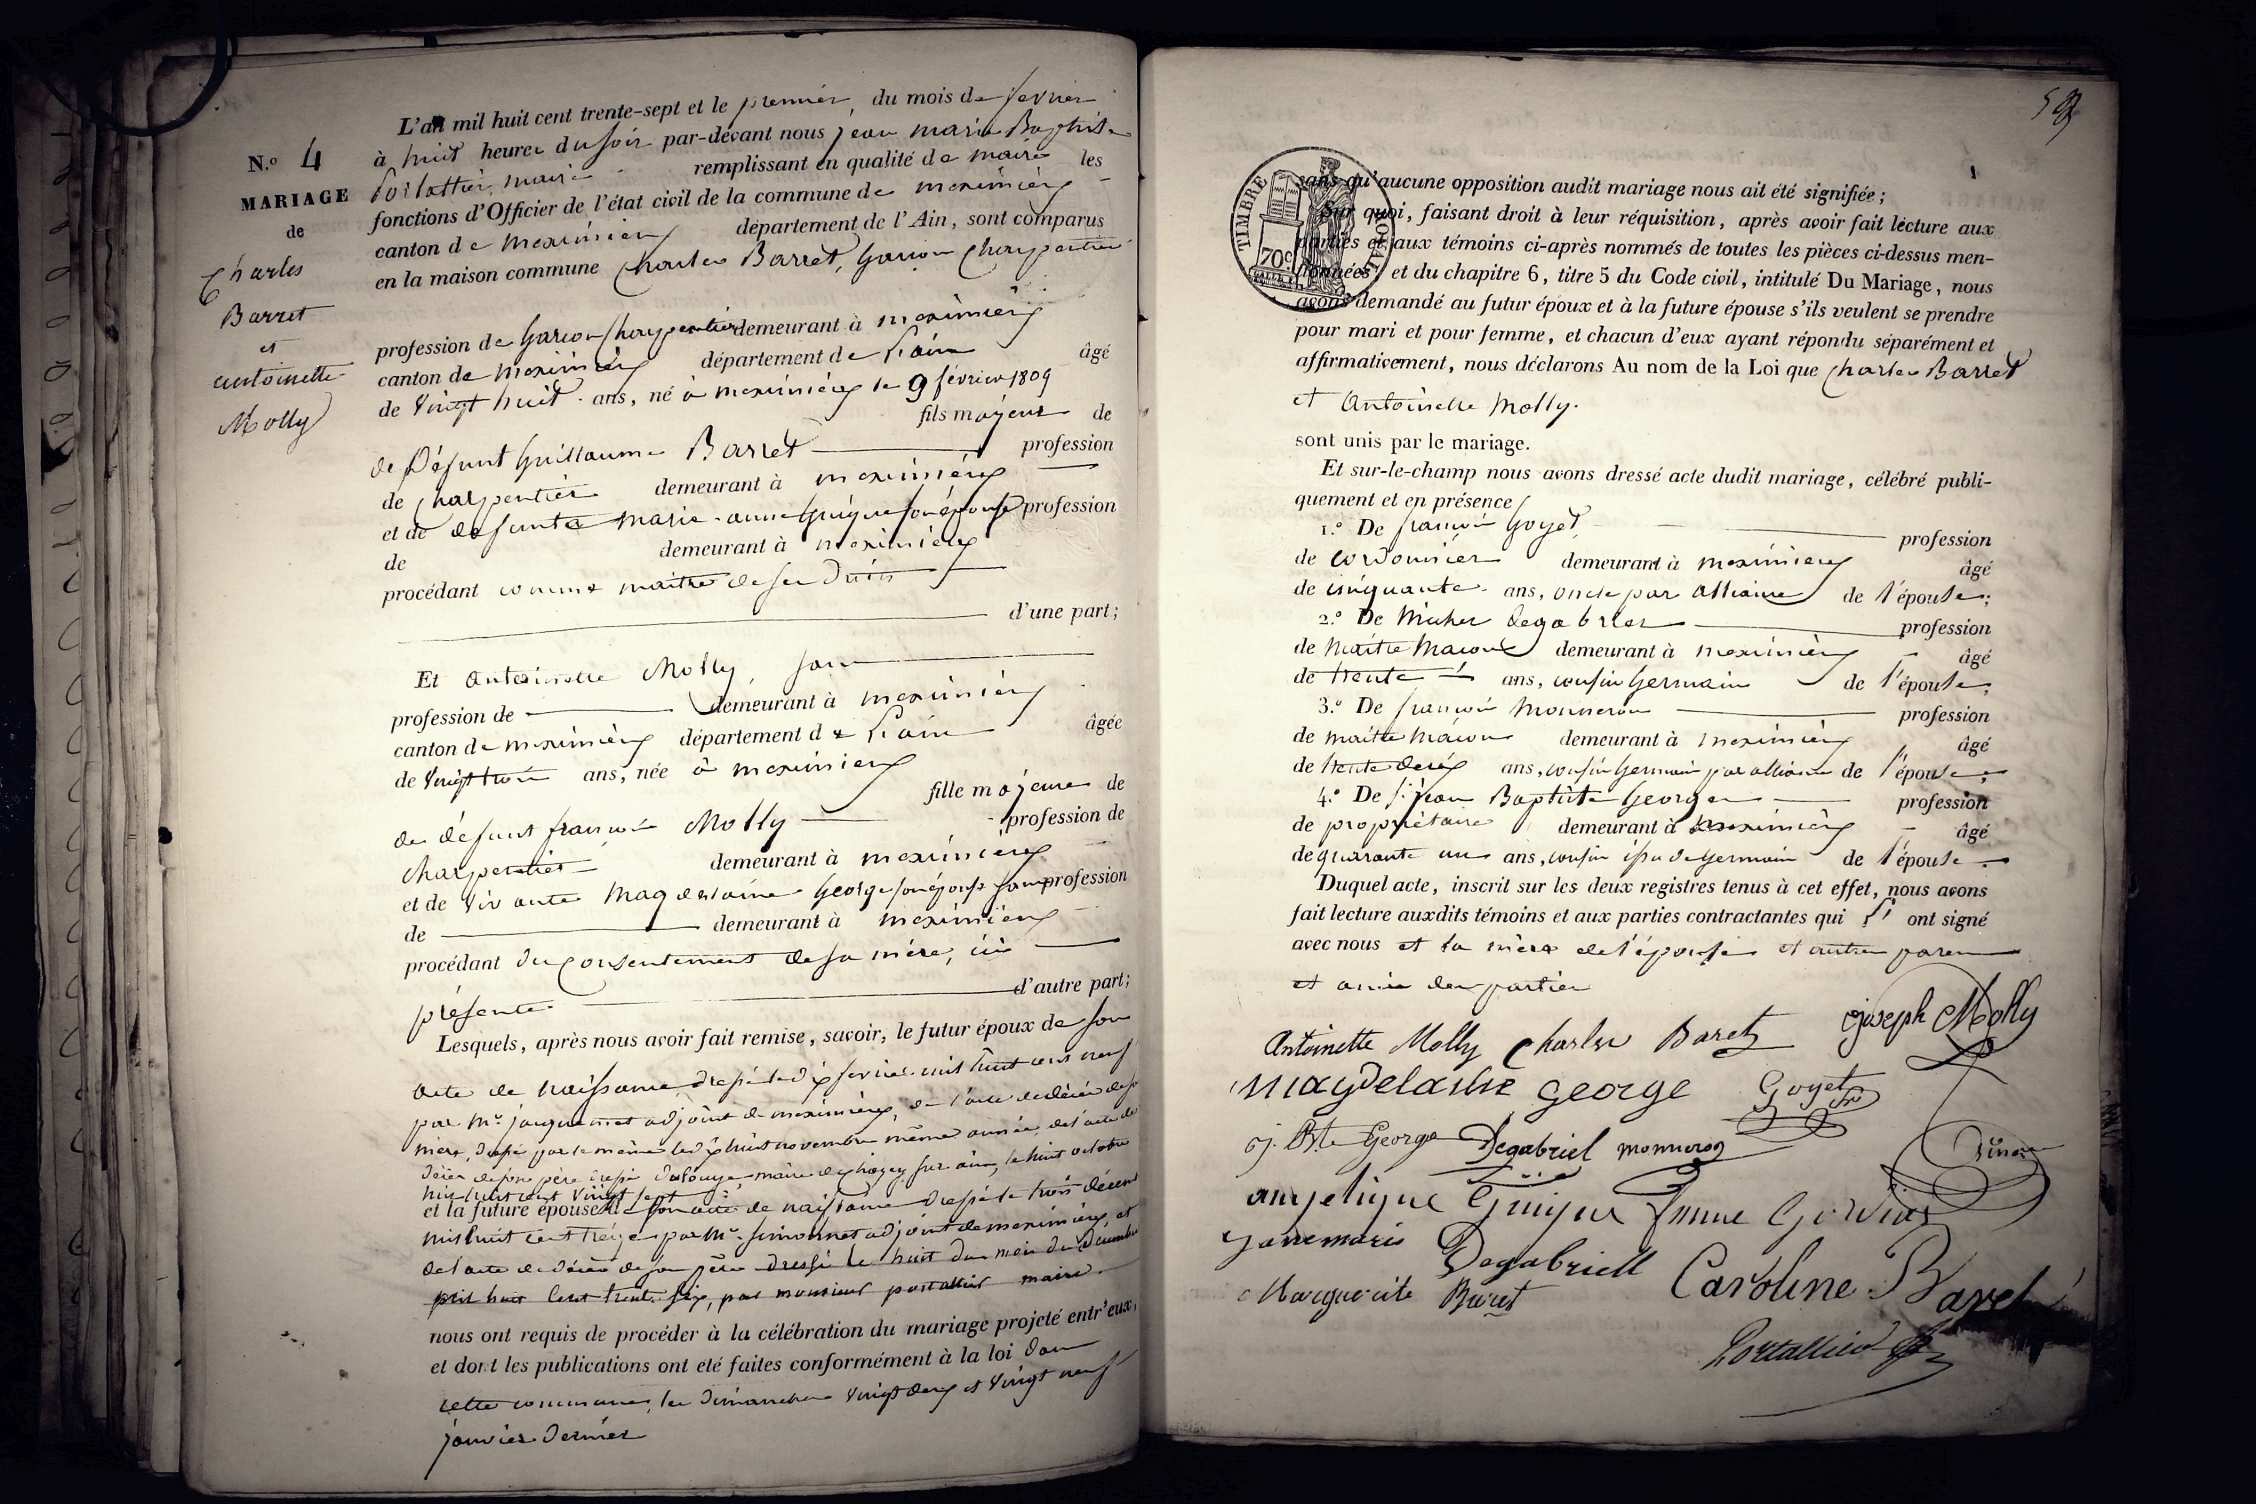 L'an mil huit cent trente-sept et le premier du mois de fevrier
N.º 4
à huit heures du soir par-devant nous jean marie Baptiste
MARIAGE
Portallier, maire remplissant en qualité de maire les
de
fonctions d'Officier de l'état civil de la commune de meximieux
canton de meximieux département de l'Ain, sont comparus
Charles
en la maison commune Charles Barret, Garçon Charpentier
Barret
et
antoinette
Molly
profession de Garçon Charpentier demeurant à meximieux
canton de meximieux département de L'ain âgé
de vingt huit ans, né à meximieux le 9 février 1809
fils majeur de
de Défunt Guillaume Barret profession
de Charpentier demeurant à meximieux
et de defunte marie-anne Guigue son épouse profession
de demeurant à meximieux
procédant comme maitre de ses droits
d'une part;
Et antoinette Molly, sans
profession de demeurant à meximieux
canton de meximieux département de L'ain âgée
de vingt trois ans, née à meximieux
fille majeure de
de défunt françois Molly profession de
charpentier demeurant à meximieux
et de vivante Magdelaine George son épouse sans profession
de demeurant à meximieux
procédant du Consentement de sa mère, ici
présente d'autre part;
Lesquels, après nous avoir fait remise, savoir, le futur époux de son
acte de naissance, dressé le dix fevrier mil huit cent neuf
par Mr. jacquemet adjoint de meximieux, de l'acte de décès de sa
mère, dressé par le même le dix huit novembre même année, de l'acte de
décès de son père dressé maire de chazey sur ain, le huit octobre
mil huit cent vingt sept
et la future épouse de son acte de naissance dressé le trois décem
mil huit cent treize par Mr. simonnet adjoint de meximieux, et
de l'acte de décès de son père dressé le huit du mois de décembre
mil huit cent trente six, par monsieur portallier maire
nous ont requis de procéder à la célébration du mariage projeté entr'eux,
et dont les publications ont été faites conformément à la loi dans
cette commune, les dimanches vingt deux et vingt neuf
janvier dernier
TIMBRE ROYAL
70c
sans qu'aucune opposition audit mariage nous ait été signifiée;
Sur quoi, faisant droit à leur réquisition, après avoir fait lecture aux
parties et aux témoins ci-après nommés de toutes les pièces ci-dessus men-
tionnées, et du chapitre 6, titre 5 du Code civil, intitulé Du Mariage, nous
avons demandé au futur époux et à la future épouse s'ils veulent se prendre
pour mari et pour femme, et chacun d'eux ayant répondu séparément et
affirmativement, nous déclarons Au nom de la Loi que Charles Barret
et Antoinette Molly.
sont unis par le mariage.
Et sur-le-champ nous avons dressé acte dudit mariage, célébré publi-
quement et en présence
1.º De françois Goyet profession
de cordonnier demeurant à meximieux âgé
de cinquante ans, oncle par alliance de l'épouse;
2.º De Michel degabriel profession
de Maitre Maçon demeurant à meximieux âgé
de trente ans, cousin Germain de l'épouse;
3.º De françois Monneron profession
de maitre maçon demeurant à meximieux âgé
de trente deux ans, cousin Germain par alliance de l'épouse;
4.º De jean Baptiste George profession
de propriétaire demeurant à meximieux âgé
de quarante un ans, cousin issu de Germain de l'épouse
Duquel acte, inscrit sur les deux registres tenus à cet effet, nous avons
fait lecture auxdits témoins et aux parties contractantes qui ont signé
avec nous et la mère de l'épouse et autres parens
et amis des parties
Antoinette Molly Charles Baret joseph Molly
magdelaine george Goyet
j. Bte George Degabriel monneron
angelique Guigue
janemaris Degabriell Caroline Baret
Marguerite Buret
Portallier